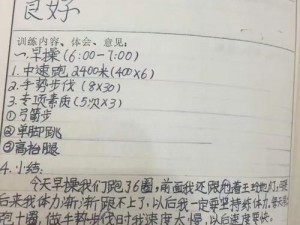 良好
训练内容、体会、意见:
一.早操(6:00-7:00)
1.中速跑2400米(400×6)
2.手势步伐(8×30)
3.专项素质(5次×3)
①弓箭步
②单脚跳
③高抬腿
4.小结:
今天早操我们跑了6圈,前面我还跟着王玲她们,跟
后来我体力渐渐跟不上了,以后我一定要坚持练体
跑十圈,做手势步伐时我速度太慢,以后速度要快。